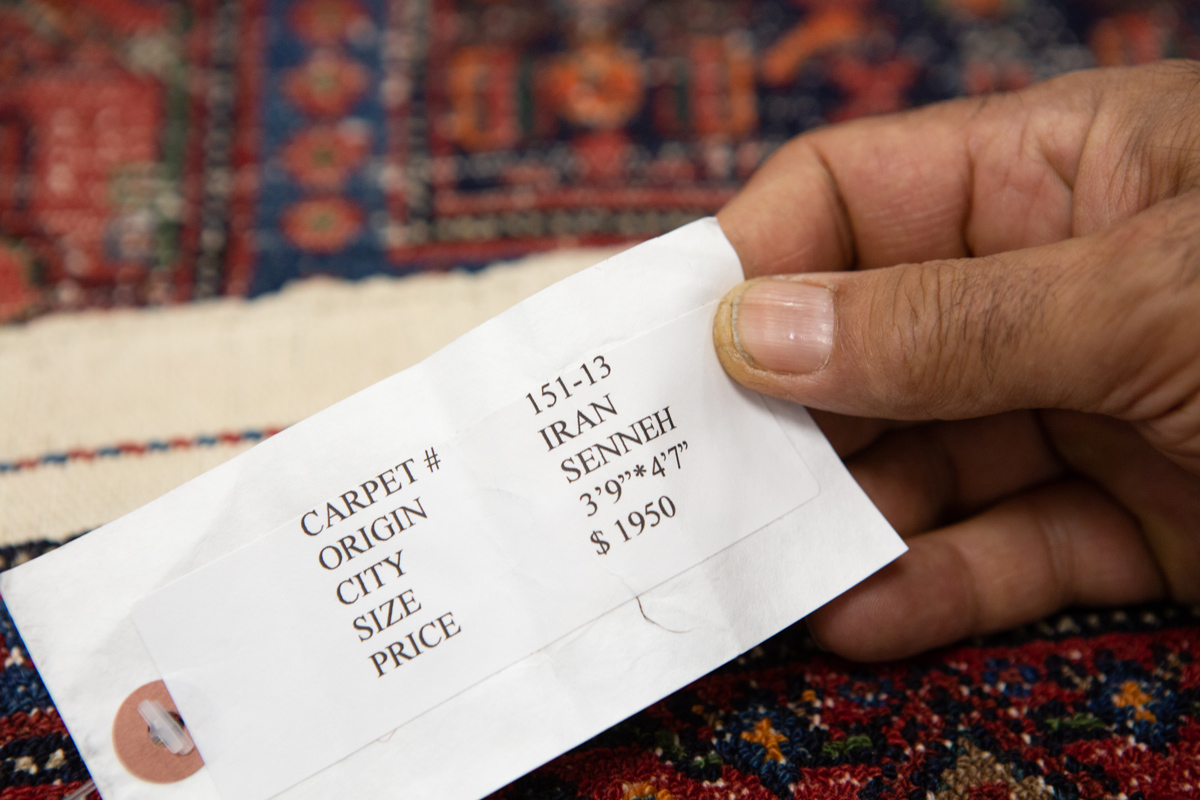 CARPET # 151-13
ORIGIN IRAN
CITY SENNEH
SIZE 3’9”*4’7”
PRICE $ 1950